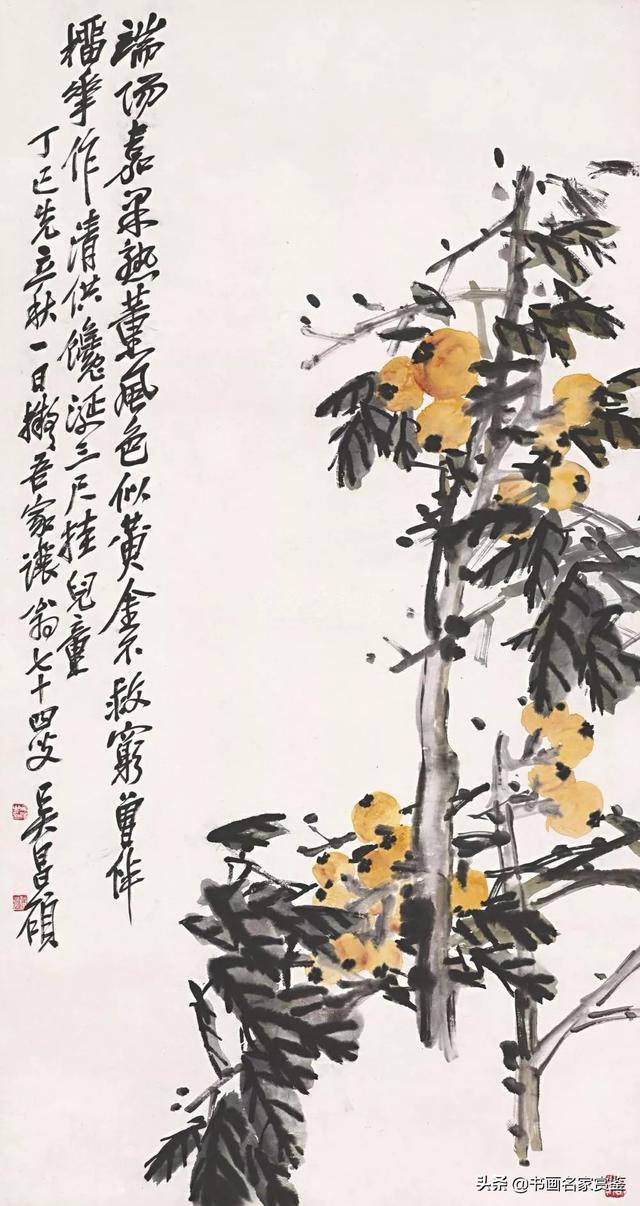 端陽嘉果熟薰風色似黄金不救窮曾伴
榴華作清供饞涎三尺挂兒童
丁巳先立秋一日擬吾家讓翁七十四叟吳昌碩
头条 @书画名家赏鉴